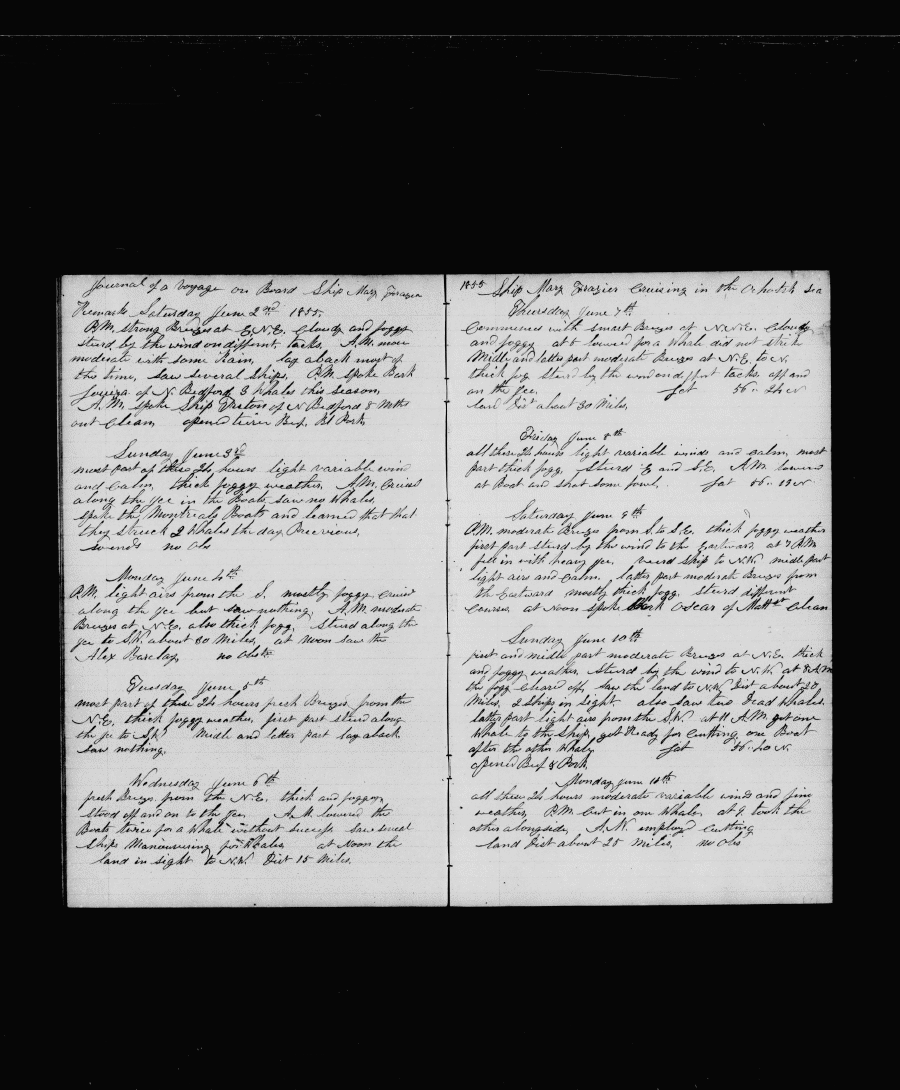 Journal of a Voyage on Board Ship Mary Frazier
Remarks Saturday June 2nd 1855.
P.M. strong Breezes at E.N.E. Cloudy and foggy
steerd by the wind on different tacks, A.M. more
moderate with some Rain, lay aback most of
the time, saw several ships. P.M. spoke Bark
of N. Bedford 3 Whales this season,
A.M. spoke Ship of N Bedford 8 Mths
out Clean opened Beef, Bl Pork
Sunday June 3rd
most part of these 24 hours light variable wind
and Calm, thick foggy weather, A.M. Cruised
along the Ice in the Boats saw no Whales
spoke the Montreals Boats and learned that that
they struck 2 Whales the day Previous,
so ends no Obs
Monday June 4th
P.M. light airs from the S. mostly foggy Cruisd
along the Ice but saw nothing, A.M. moderate
Breezes at N.E. also thick fogg. Steerd along the
Ice to S.W. about 30 Miles, at Noon saw the
Alex Barclay, no Obs
Tuesday June 5th
most part of these 24 hours fresh Breezes from the
N.E. thick foggy weather, first part steerd along
the Ice to Midle and latter part lay aback
saw nothing.
Wednesday June 6th
fresh Breezes from the N.E. thick and foggy,
stood off and on to the Ice, A.M. lowered the
Boats twice for a Whale without success saw several
ships Manouvering for Whales at Noon the
land in sight to N.W. Dist 15 Miles.
1855 Ship Mary Frazier Cruising in the Ochotsk Sea
Thursday June 7th
Commences with smart Breezes at N.N.E. Cloudy
and foggy at 6 lowered for a Whale did not strike
Midle and latter part moderate Breezes at N.E. to N.
thick fog steerd by the wind on diffrt tacks. off and
on the Ice, Lat 56.. 24 N
land Dist about 30 Miles,
Friday June 8th
all these 24 hours light variable winds and calm, most
part thick fogg, Steerd E and S.E. A.M. lowered
at Boat and shot some fowl. Lat 56.. 19 N
Saturday June 9th
P.M. moderate Breezes from S. to S.E. thick foggy weather
first part steerd by the wind to the Eastward at 7 P.M.
fell in with heavy Ice, veerd ship to N.W. midle part
light airs and Calm, latter part moderate Breezes from
the Eastward mostly thick fogg. steerd different
Courses, at Noon spoke Bark Oscar of Clean
Sunday June 10th
first and midle part moderate Breezes at N.E. thick
and foggy weather, Steerd by the wind to N.W. at 8 A.M
the fogg Cleard off, saw the land to N.W. Dist about 20
Miles, 2 ships in sight. also saw two Dead Whales.
latter part light airs from the S.W. at 11 A.M. got one
Whale to the Ship, got Ready for Cutting, one Boat
after the other Whale Lat 56.. 20 N.
opened Beef & Pork
Monday June 11th
all these 24 hours moderate variable winds and fine
weather, P.M. Cut in one Whale, at 9 took the
other alongside, A.M. employd Cutting
land Dist about 25 Miles, no Obs